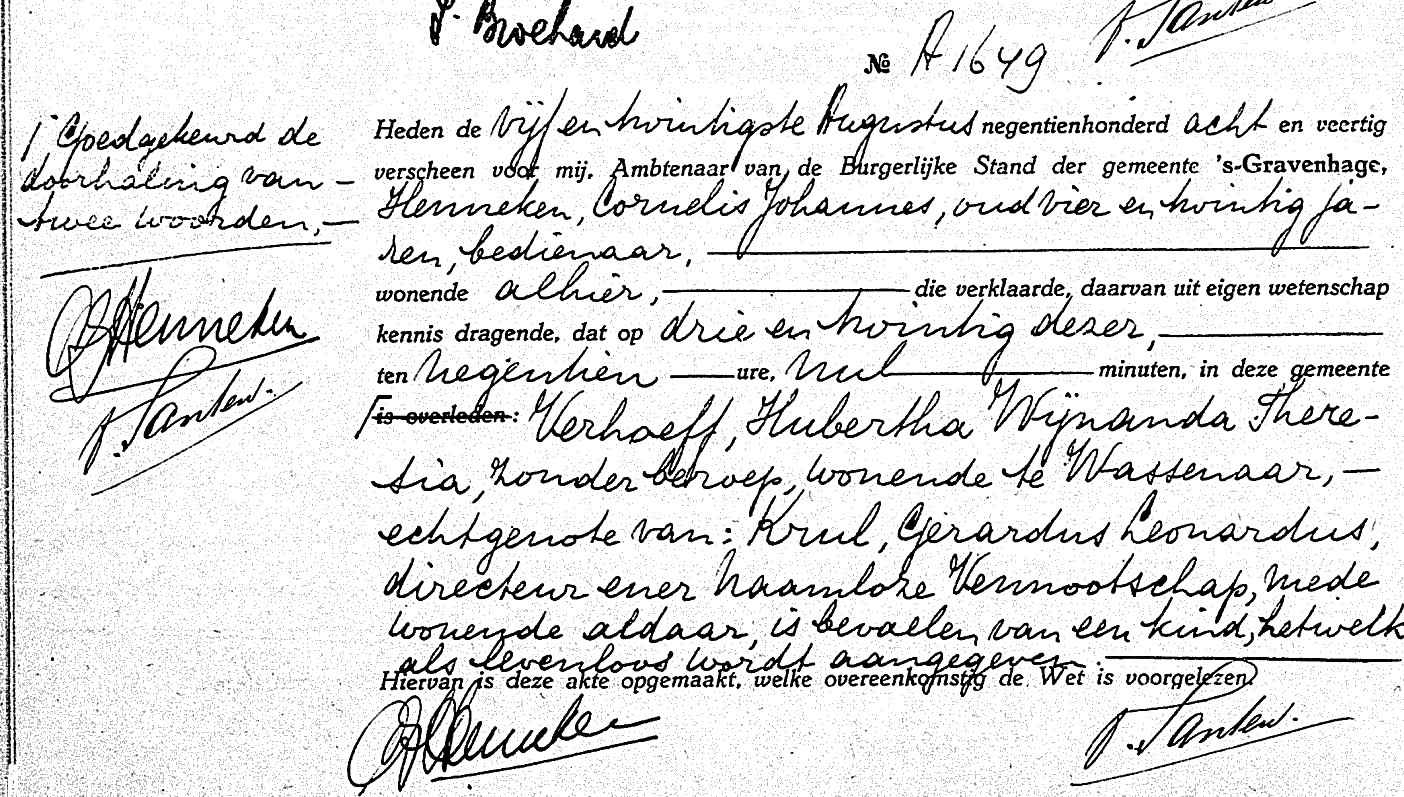 Brochard
No A 1649
Heden de vijf en twintigste Augustus negentienhonderd acht en veertig
verscheen voor mij, Ambtenaar van de Burgerlijke Stand der gemeente 's-Gravenhage,
Henneken, Cornelis Johannes, oud vier en twintig ja-
ren, bedienaar,
wonende alhier, die verklaarde, daarvan uit eigen wetenschap
kennis dragende, dat op drie en twintig dezer,
ten negentien ure, nul minuten, in deze gemeente
is overleden: Verhoeff, Hubertha Wijnanda There-
sia, zonder beroep, wonende te Wassenaar,
echtgenote van: Krul, Gerardus Leonardus,
directeur ener Naamloze Vennootschap, mede
wonende aldaar, is bevallen van een kind, hetwelk
als levenloos wordt aangegeven.
Hiervan is deze akte opgemaakt, welke overeenkomstig de Wet is voorgelezen.
Henneken
Goedgekeurd de
doorhaling van
twee woorden.
Henneken